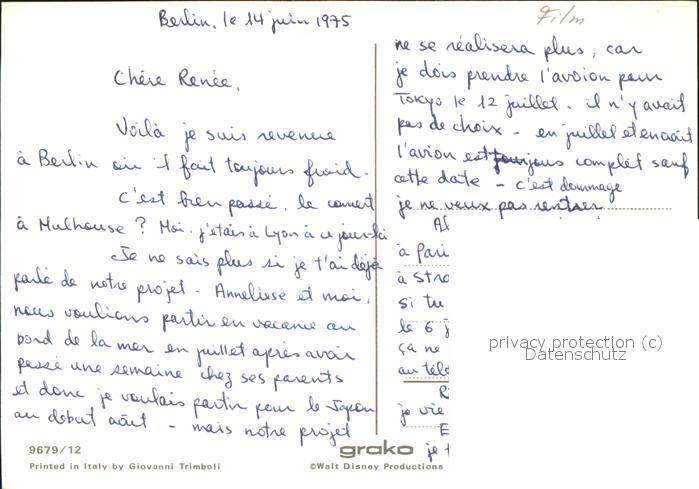 Berlin, le 14 juin 1975
Film
Chère Renée,
Voilà je suis revenue
à Berlin où il fait toujours froid.
C'est bien passé, le concert
à Mulhouse ? Moi, j'étais à Lyon à ce jour-là
Je ne sais plus si je t'ai déjà
parlé de notre projet - Anneliese et moi,
nous voulions partir en vacance au
bord de la mer en juillet après avoir
passé une semaine chez ses parents
et donc je voulais partir pour le Japon
au début août - mais notre projet
ne se réalisera plus, car
je dois prendre l'avoion pour
Tokyo le 12 juillet. il n'y avait
pas de choix - en juillet et en août
l'avion est toujours complet sauf
cette date - c'est dommage
je ne veux pas rentrer
à Pari
à Stra
si tu
le 6 j
ça ne
au télé
je vie
je t
privacy protection (c)
Datenschutz
9679/12
grako
Printed in Italy by Giovanni Trimboli
©Walt Disney Productions